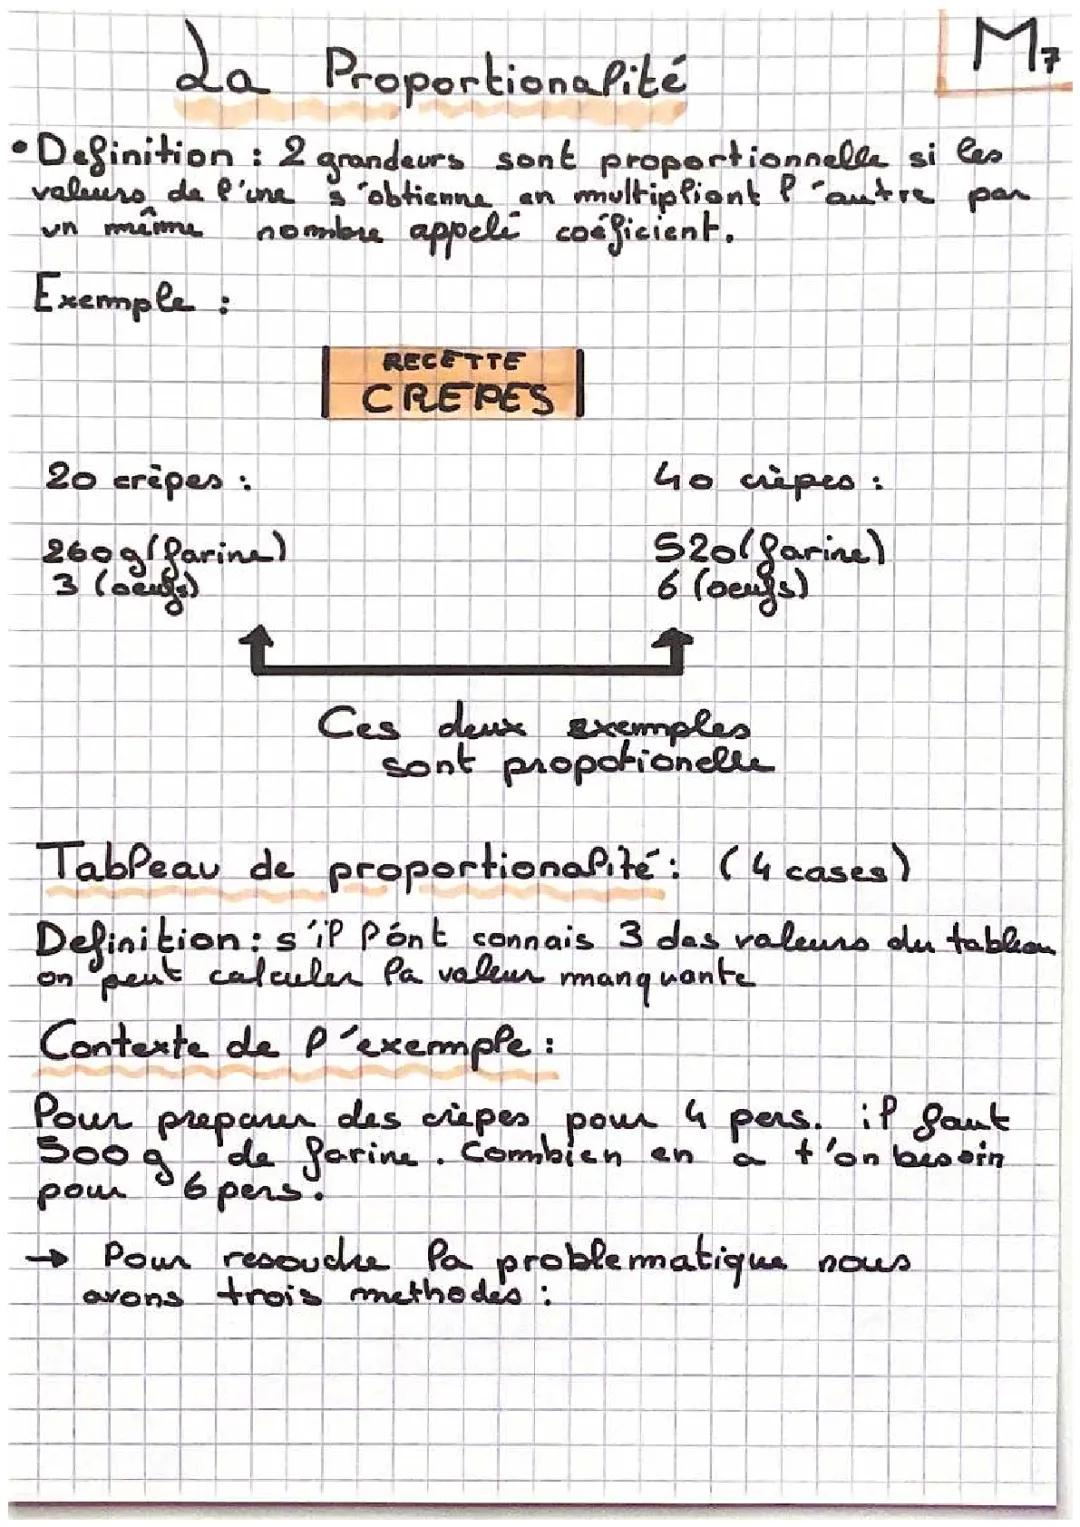 La Proportionalité
M7
• Definition : 2 grandeurs sont proportionnelle si les
valeurs de l'une s'obtienne en multipliant l'autre par
un même nombre appelé coéficient.
Exemple :
RECETTE
CREPES
20 crêpes :
40 crêpes :
260g (farine)
520 (farine)
3 (oeufs)
6 (oeufs)
Ces deux exemples
sont propotionelle
Tableau de proportionalité : (4 cases)
Definition : s'il l'ont connais 3 des valeurs du tableau
on peut calculer la valeur manquante
Contexte de l'exemple :
Pour preparer des crêpes pour 4 pers. il faut
500g de farine. Combien en a t'on besoin
pour 6 pers.
→ Pour resoudre la problematique nous
avons trois methodes :